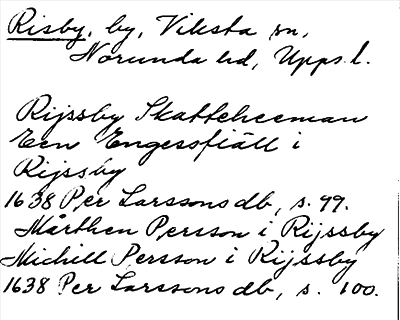 Risby, by, Viksta sn,
Norunda hd, Upps. l.
Rijssby Skatteheeman
Een Engessfiäll i
Rijssby
1638 Per Larssons db, s. 99.
Mårthen Persson i Rijssby
Michill Persson i Rijssby
1638 Per Larssons db, s. 100.